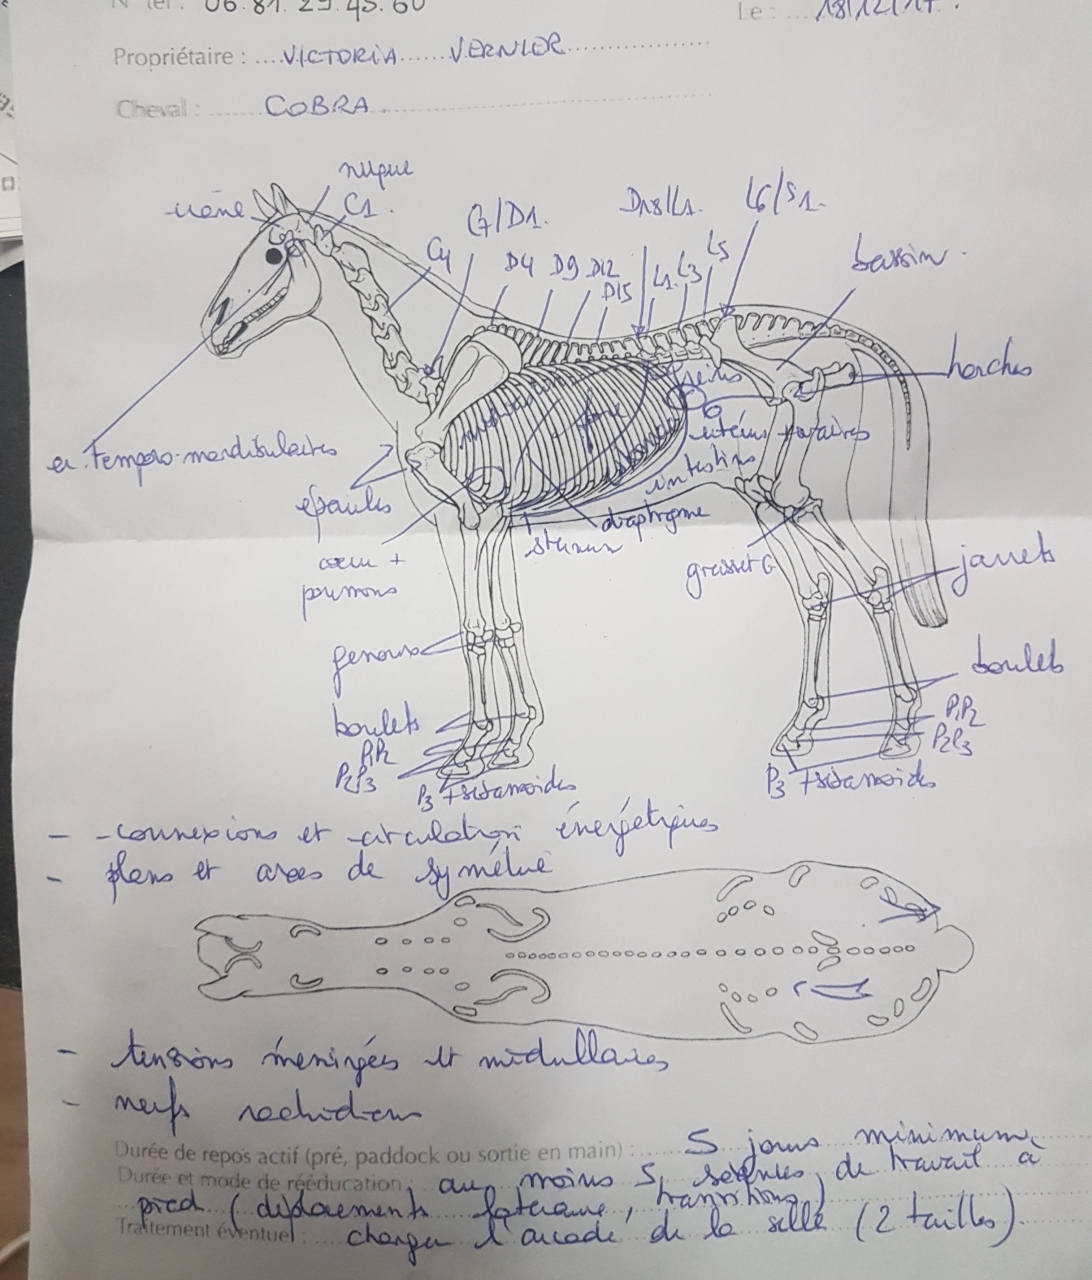 N° tél : 06.81.29.45.60
Le : 18/12/17.
Propriétaire : VICTORIA VERNIER
Cheval : COBRA
nuque
crâne
C1
C7/D1.
D18/L1.
L6/S1.
C4
D4 D9 D12
D15
L1 L3
L5
bassin
hanches
reins
médiastin
foie
utérus + ovaires
intestins
er. tempéro-mandibulaires
épaules
diaphragme
sternum
coeur +
poumons
grasset G
jarrets
genoux
boulets
boulets
P1P2
P1P2
P2P3
P2P3
P3 + sésamoïdes
P3 + sésamoïdes
- connexions et circulation énergétiques
- plans et axes de symétrie
- tensions méningées et médullaires
- nerfs rachidiens
Durée de repos actif (pré, paddock ou sortie en main) : 5 jours minimum
Durée et mode de rééducation : au moins 5 séances de travail à
pied (déplacements latéraux, transitions)
Traitement éventuel : changer l'arcade de la selle (2 tailles).